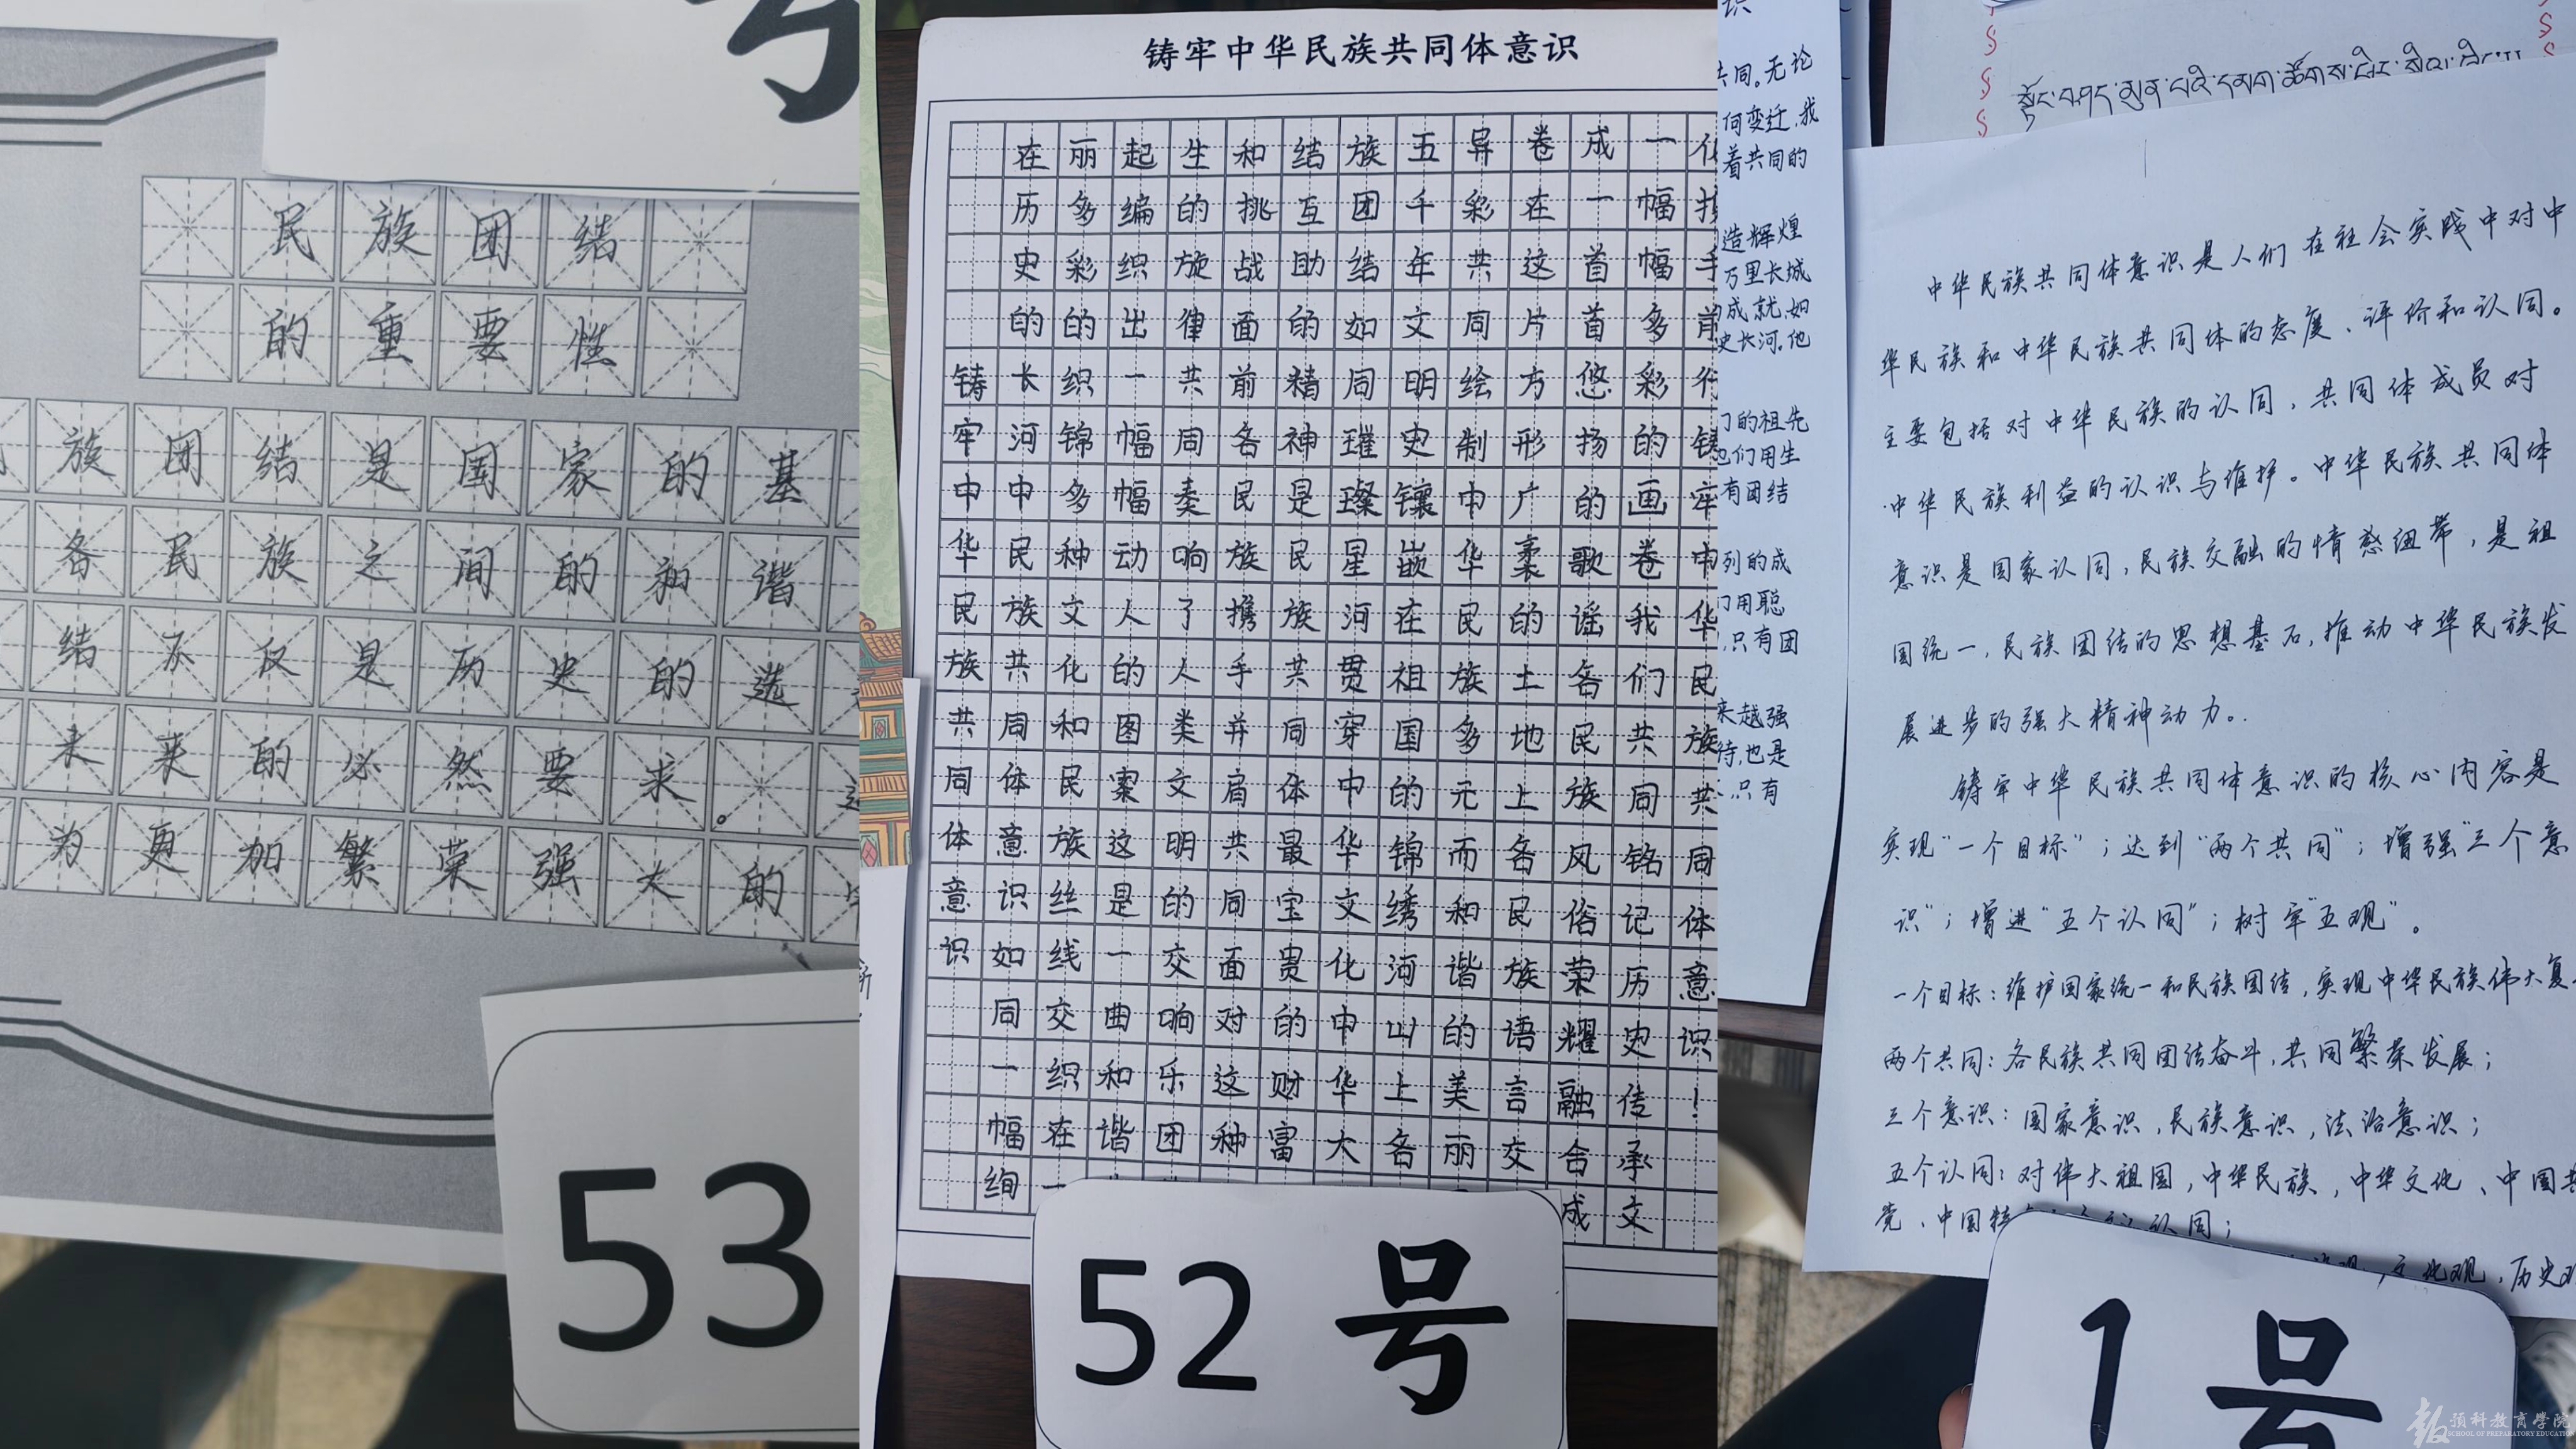 号
民族团结
的重要性
族团结是国家的基
各民族之间的和谐
结不仅是历史的选
未来的必然要求。
为更加繁荣强大的
53
铸牢中华民族共同体意识
铸牢中华民族共同体意识
在历史的长河中民族共同体意识如同一幅绚
丽多彩的织锦多种文化和民族丝线交织在一
起编织出一幅幅动人的图案这是一曲和谐
生的旋律共同奏响了人类文明的交响乐团
和挑战面前各民族携手并肩共同面对这种
结互助的精神是民族共同体最宝贵的财富
族团结如同璀璨星河贯穿中华文化中华大
五千年文明史镶嵌在祖国的锦绣河山上各
异彩共同绘制中华民族多元而和谐的美丽
卷在这片方形广袤的土地上各民族语言交
成一首首悠扬的歌谣各民族风俗荣耀融合成
一幅幅多彩的画卷我们共同铭记历史传承文
手前行铸牢中华民族共同体意识!
52 号
识
共同。无论
何变迁,我
着共同的
造辉煌
万里长城
成就,如
史长河。他
们的祖先
也们用生
有团结
列的成
们用聪
,只有团
来越强
待,也是
,只有
中华民族共同体意识是人们在社会实践中对中
华民族和中华民族共同体的态度、评价和认同。
主要包括对中华民族的认同,共同体成员对
中华民族利益的认识与维护。中华民族共同体
意识是国家认同,民族交融的情感纽带,是祖
国统一,民族团结的思想基石,推动中华民族发
展进步的强大精神动力。
铸牢中华民族共同体意识的核心内容是
实现“一个目标”;达到“两个共同”;增强“三个意
识”;增进“五个认同”;树牢“五观”。
一个目标:维护国家统一和民族团结,实现中华民族伟大复
两个共同:各民族共同团结奋斗,共同繁荣发展;
三个意识:国家意识,民族意识,法治意识;
五个认同:对伟大祖国,中华民族,中华文化、中国共
党、中国特 认同;
文化观,历史观
1 号
预科教育学院
SCHOOL OF PREPARATORY EDUCATION